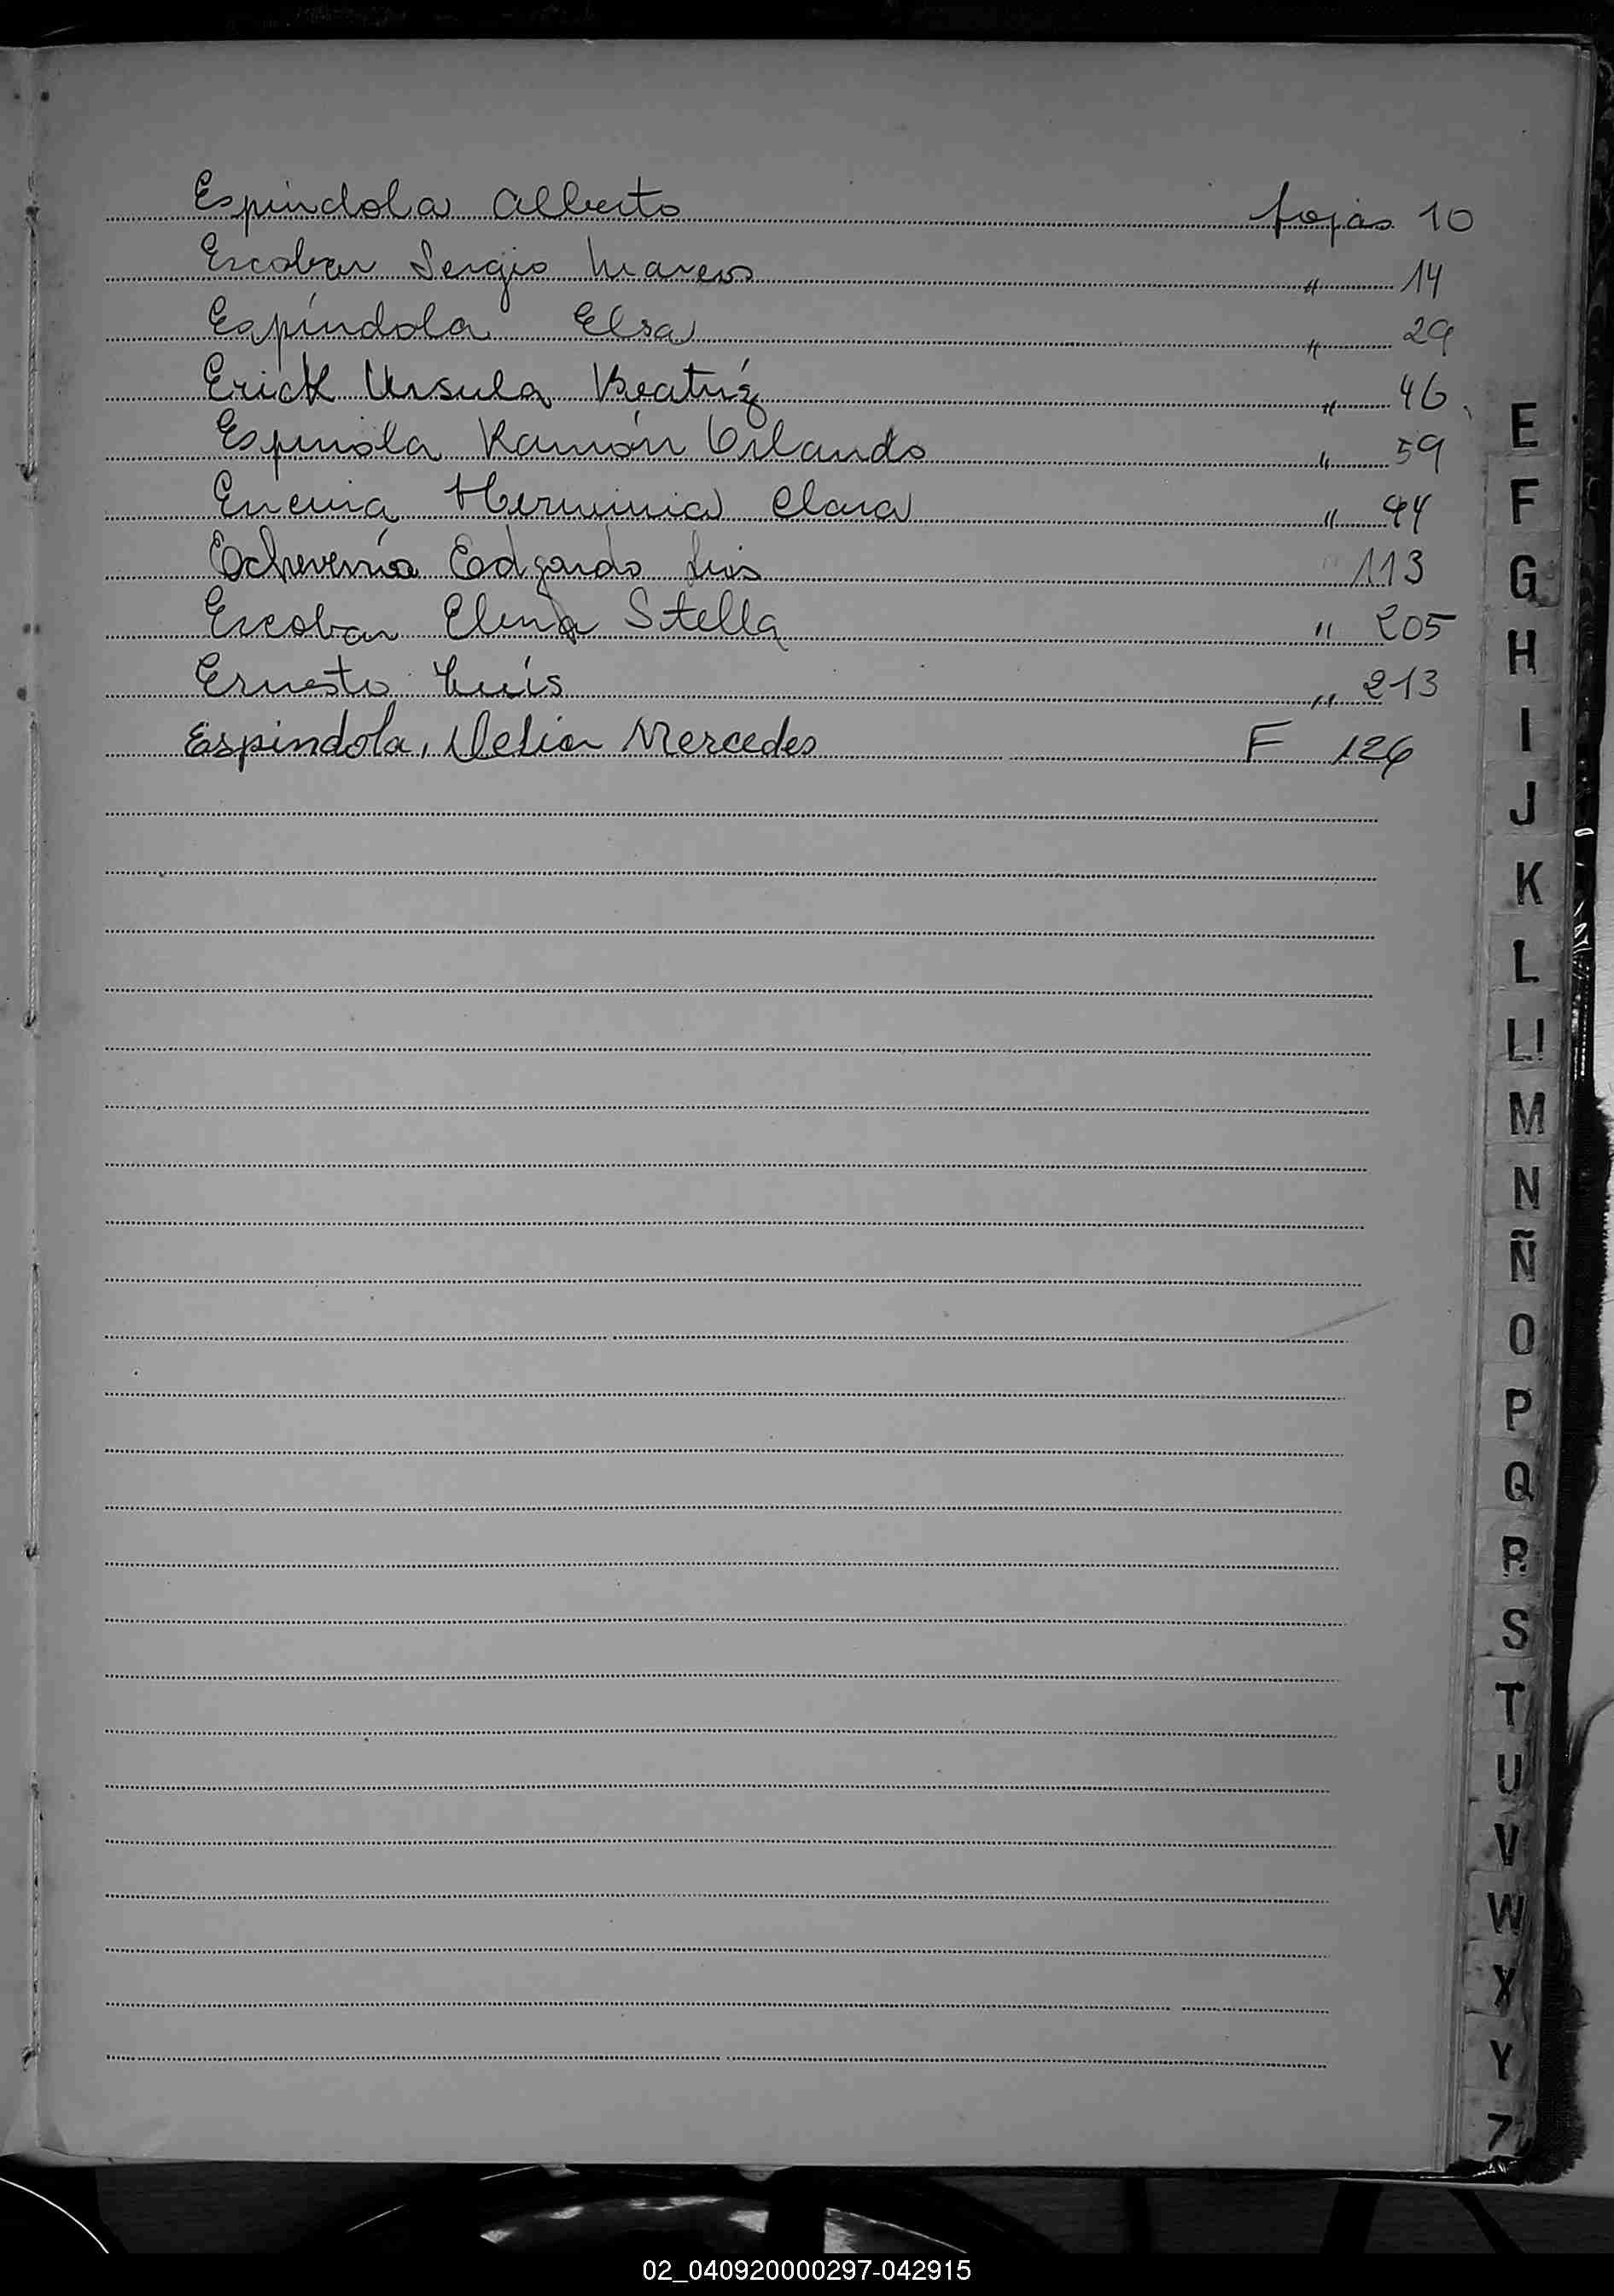 Espindola Alberto fojas 10
Escobar Sergio Marcos " 14
Espíndola Elsa " 29
Erick Ursula Beatríz " 46
Espinola Ramón Orlando " 59
Encina Herminia Clara " 94
Echeverría Edgardo Luis " 113
Escobar Elena Stella " 205
Ernesto Luís " 213
Espindola, Delia Mercedes F 126
E
F
G
H
I
J
K
L
Ll
M
N
Ñ
O
P
Q
R
S
T
U
V
W
X
Y
Z
02_040920000297-042915